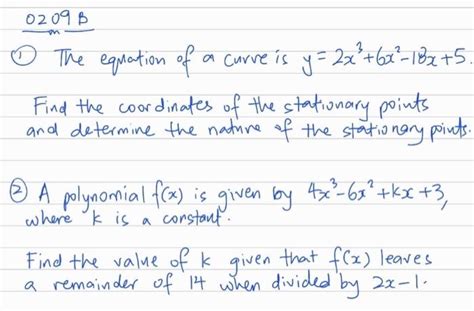 0209B
① The equation of a curve is y = 2x³+6x²-18x+5.
Find the coordinates of the stationary points
and determine the nature of the stationary points.
② A polynomial f(x) is given by 4x³-6x²+kx+3,
where k is a constant.
Find the value of k given that f(x) leaves
a remainder of 14 when divided by 2x-1.